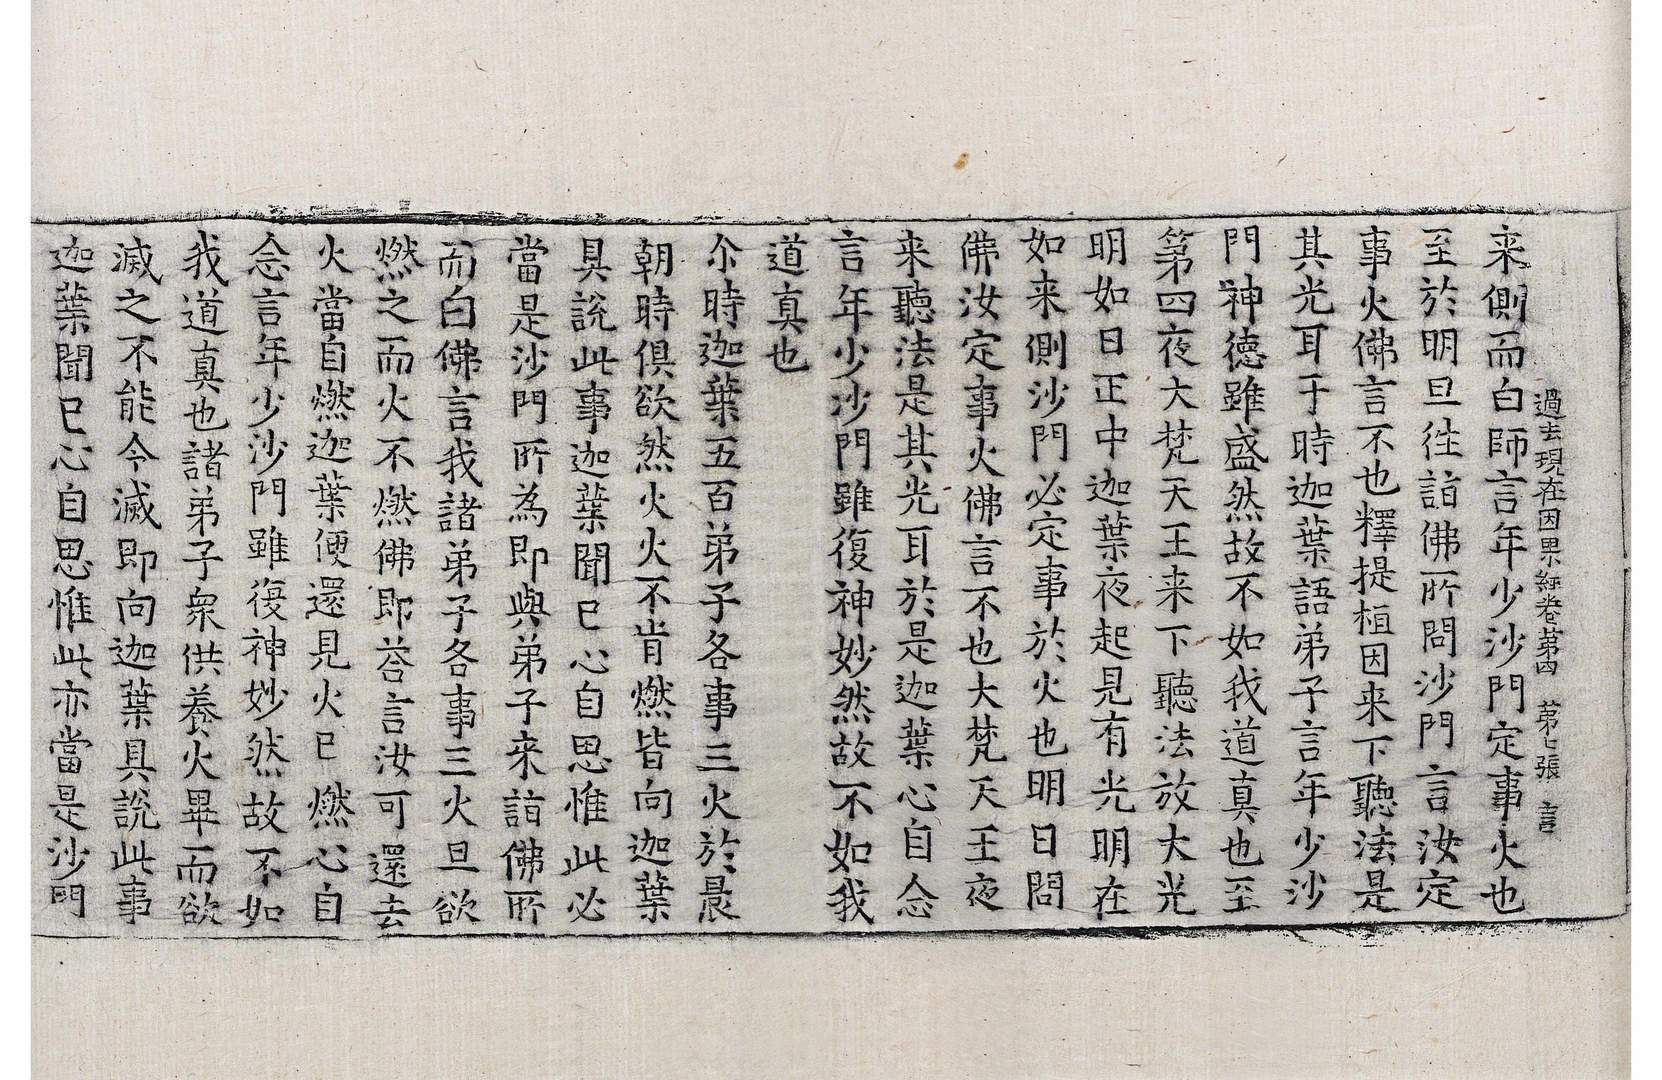 過去現在因果經卷第四 第七張 言
来側而白師言年少沙門定事火也
至於明旦往詣佛所問沙門言汝定
事火佛言不也釋提桓因来下聽法是
其光耳于時迦葉語弟子言年少沙
門神德雖盛然故不如我道真也至
第四夜大梵天王来下聽法放大光
明如日正中迦葉夜起見有光明在
如来側沙門必定事於火也明日問
佛汝定事火佛言不也大梵天王夜
来聽法是其光耳於是迦葉心自念
言年少沙門雖復神妙然故不如我
道真也
尒時迦葉五百弟子各事三火於晨
朝時俱欲然火火不肯燃皆向迦葉
具說此事迦葉聞已心自思惟此必
當是沙門所為即與弟子来詣佛所
而白佛言我諸弟子各事三火旦欲
燃之而火不燃佛即荅言汝可還去
火當自燃迦葉便還見火已燃心自
念言年少沙門雖復神妙然故不如
我道真也諸弟子衆供養火畢而欲
滅之不能令滅即向迦葉具說此事
迦葉聞已心自思惟此亦當是沙門